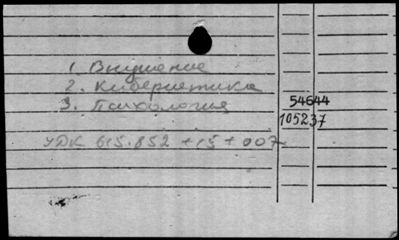 1. Внушение
2. Кибернетика
3. Психология
54644
105237
УДК 615.852 + 15 + 007